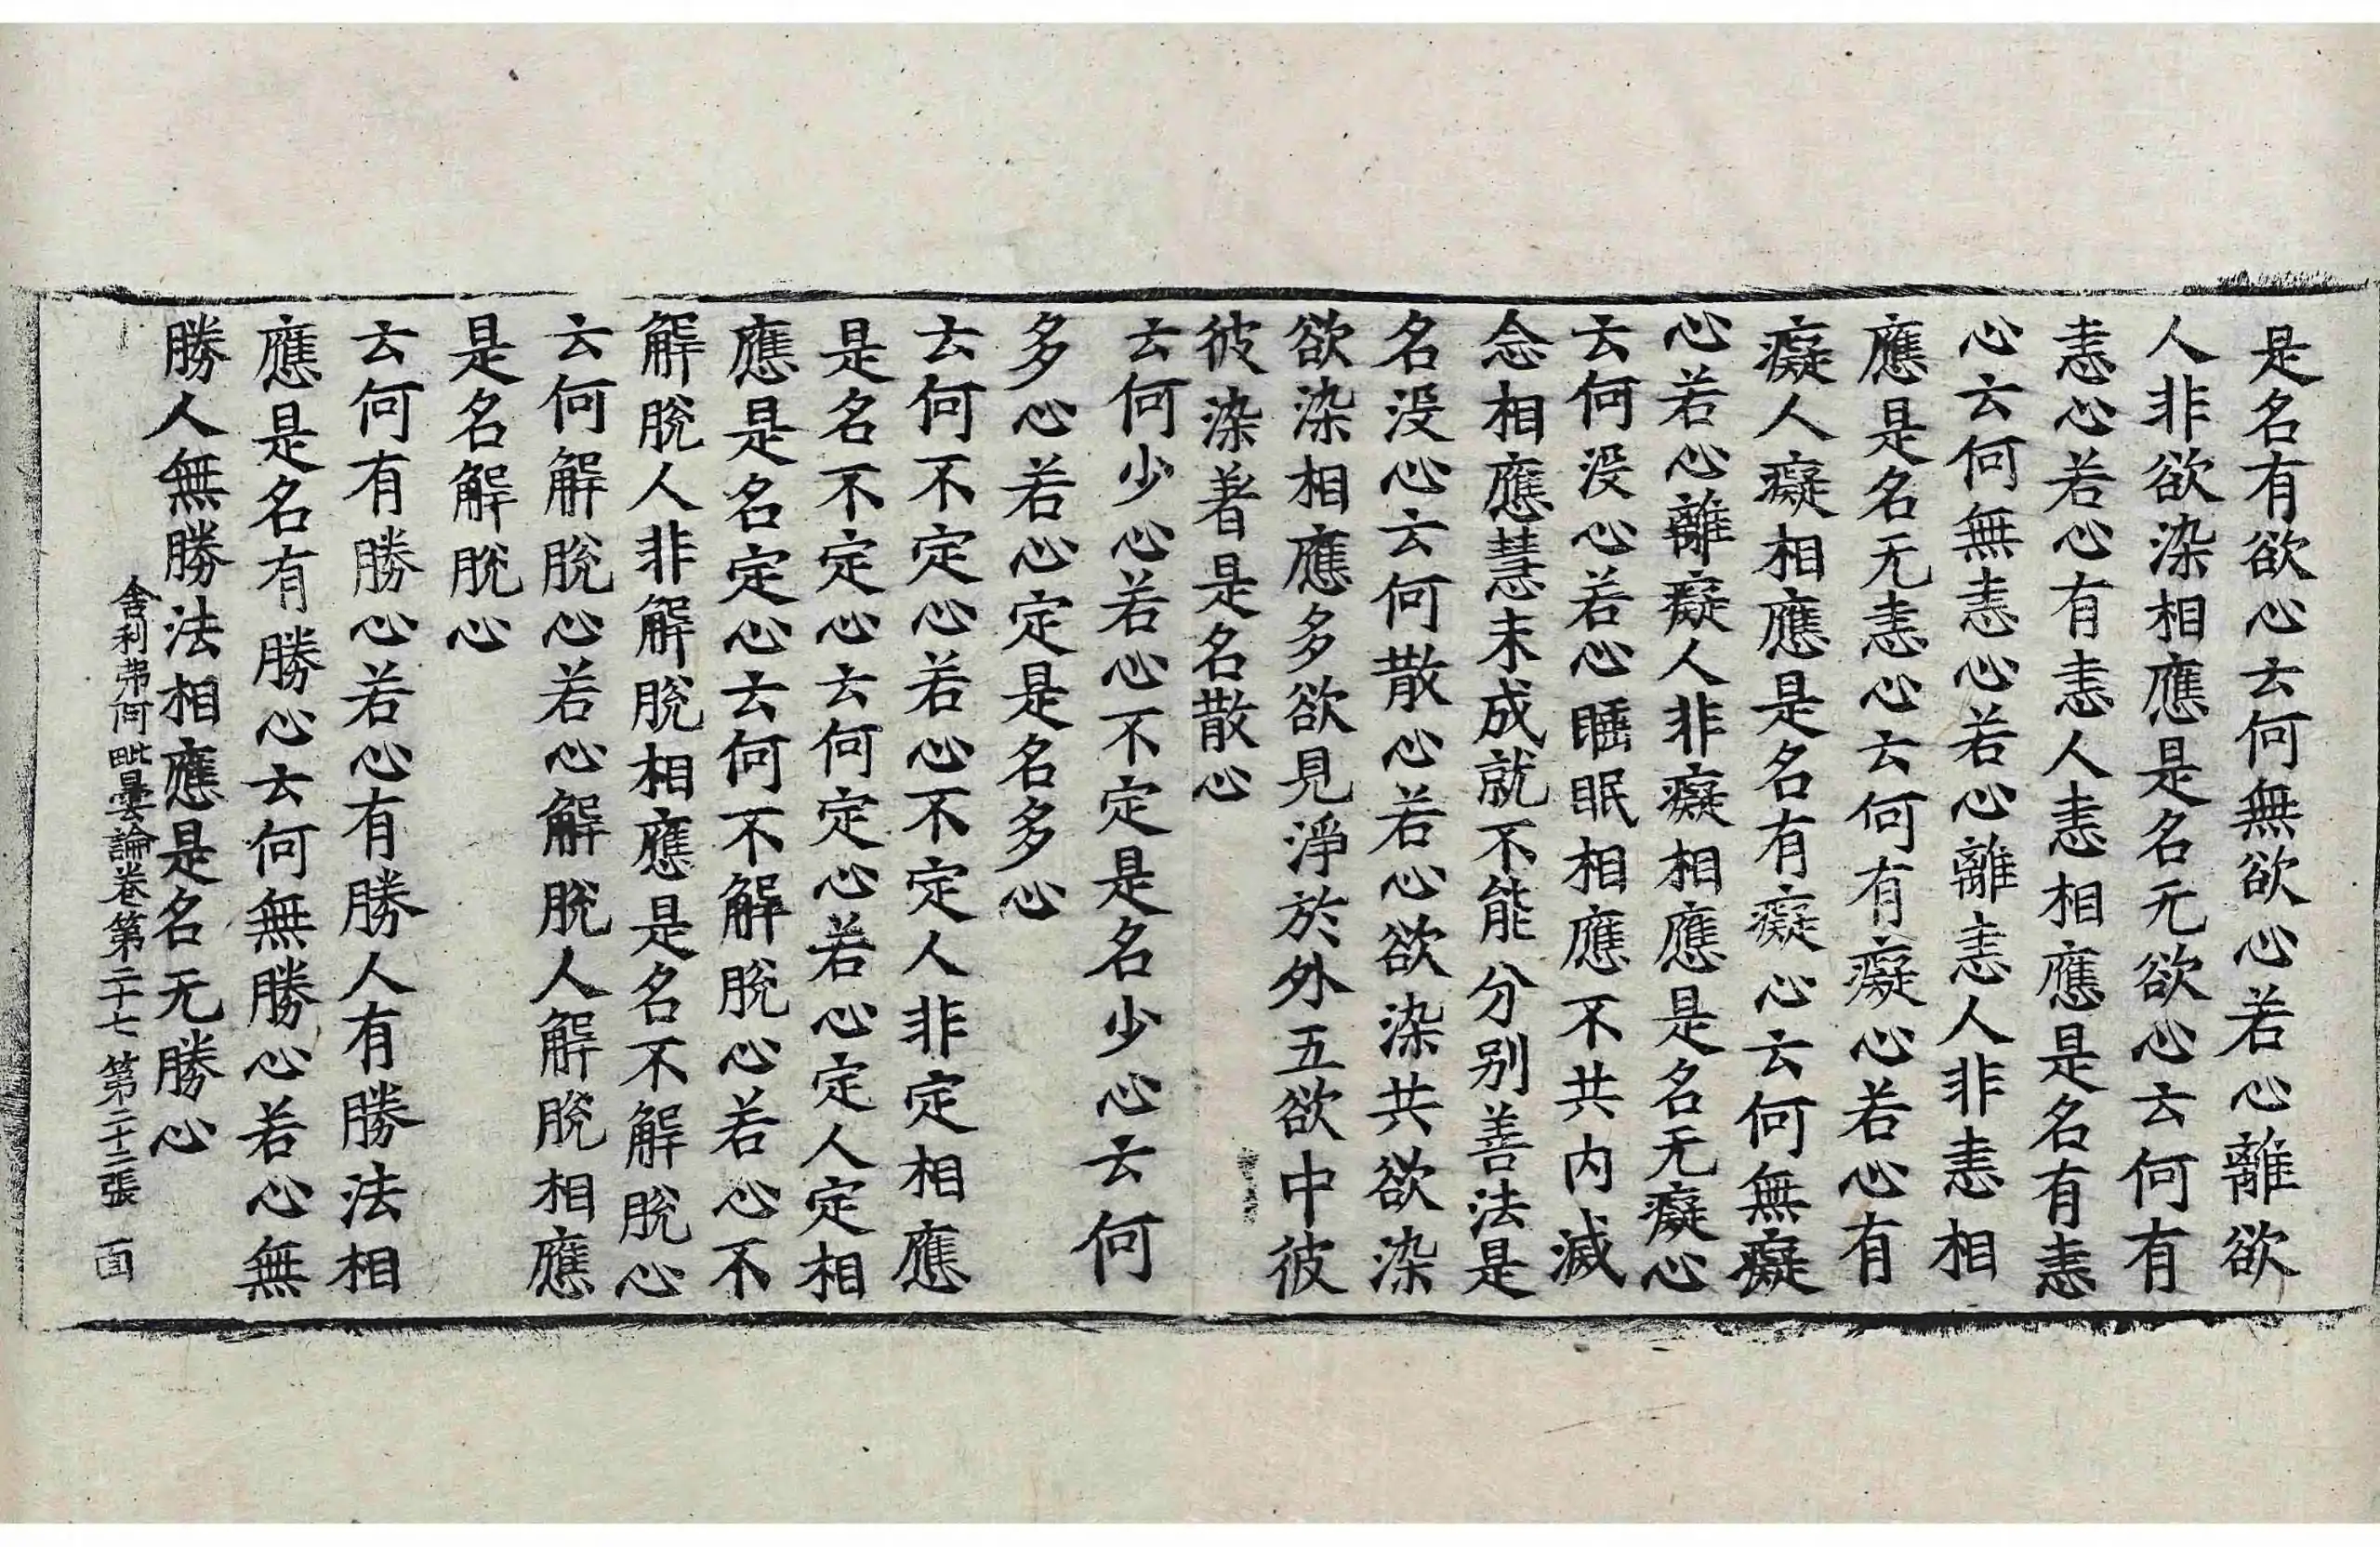 是名有欲心云何無欲心若心離欲
人非欲染相應是名无欲心云何有
恚心若心有恚人恚相應是名有恚
心云何無恚心若心離恚人非恚相
應是名无恚心云何有癡心若心有
癡人癡相應是名有癡心云何無癡
心若心離癡人非癡相應是名无癡心
云何没心若心睡眠相應不共内滅
念相應慧未成就不能分别善法是
名没心云何散心若心欲染共欲染
欲染相應多欲見淨於外五欲中彼
彼染著是名散心
云何少心若心不定是名少心云何
多心若心定是名多心
云何不定心若心不定人非定相應
是名不定心云何定心若心定人定相
應是名定心云何不解脫心若心不
解脫人非解脫相應是名不解脫心
云何解脫心若心解脫人解脫相應
是名解脫心
云何有勝心若心有勝人有勝法相
應是名有勝心云何無勝心若心無
勝人無勝法相應是名无勝心
舍利弗阿毗曇論卷第二十七 第二十二張 面